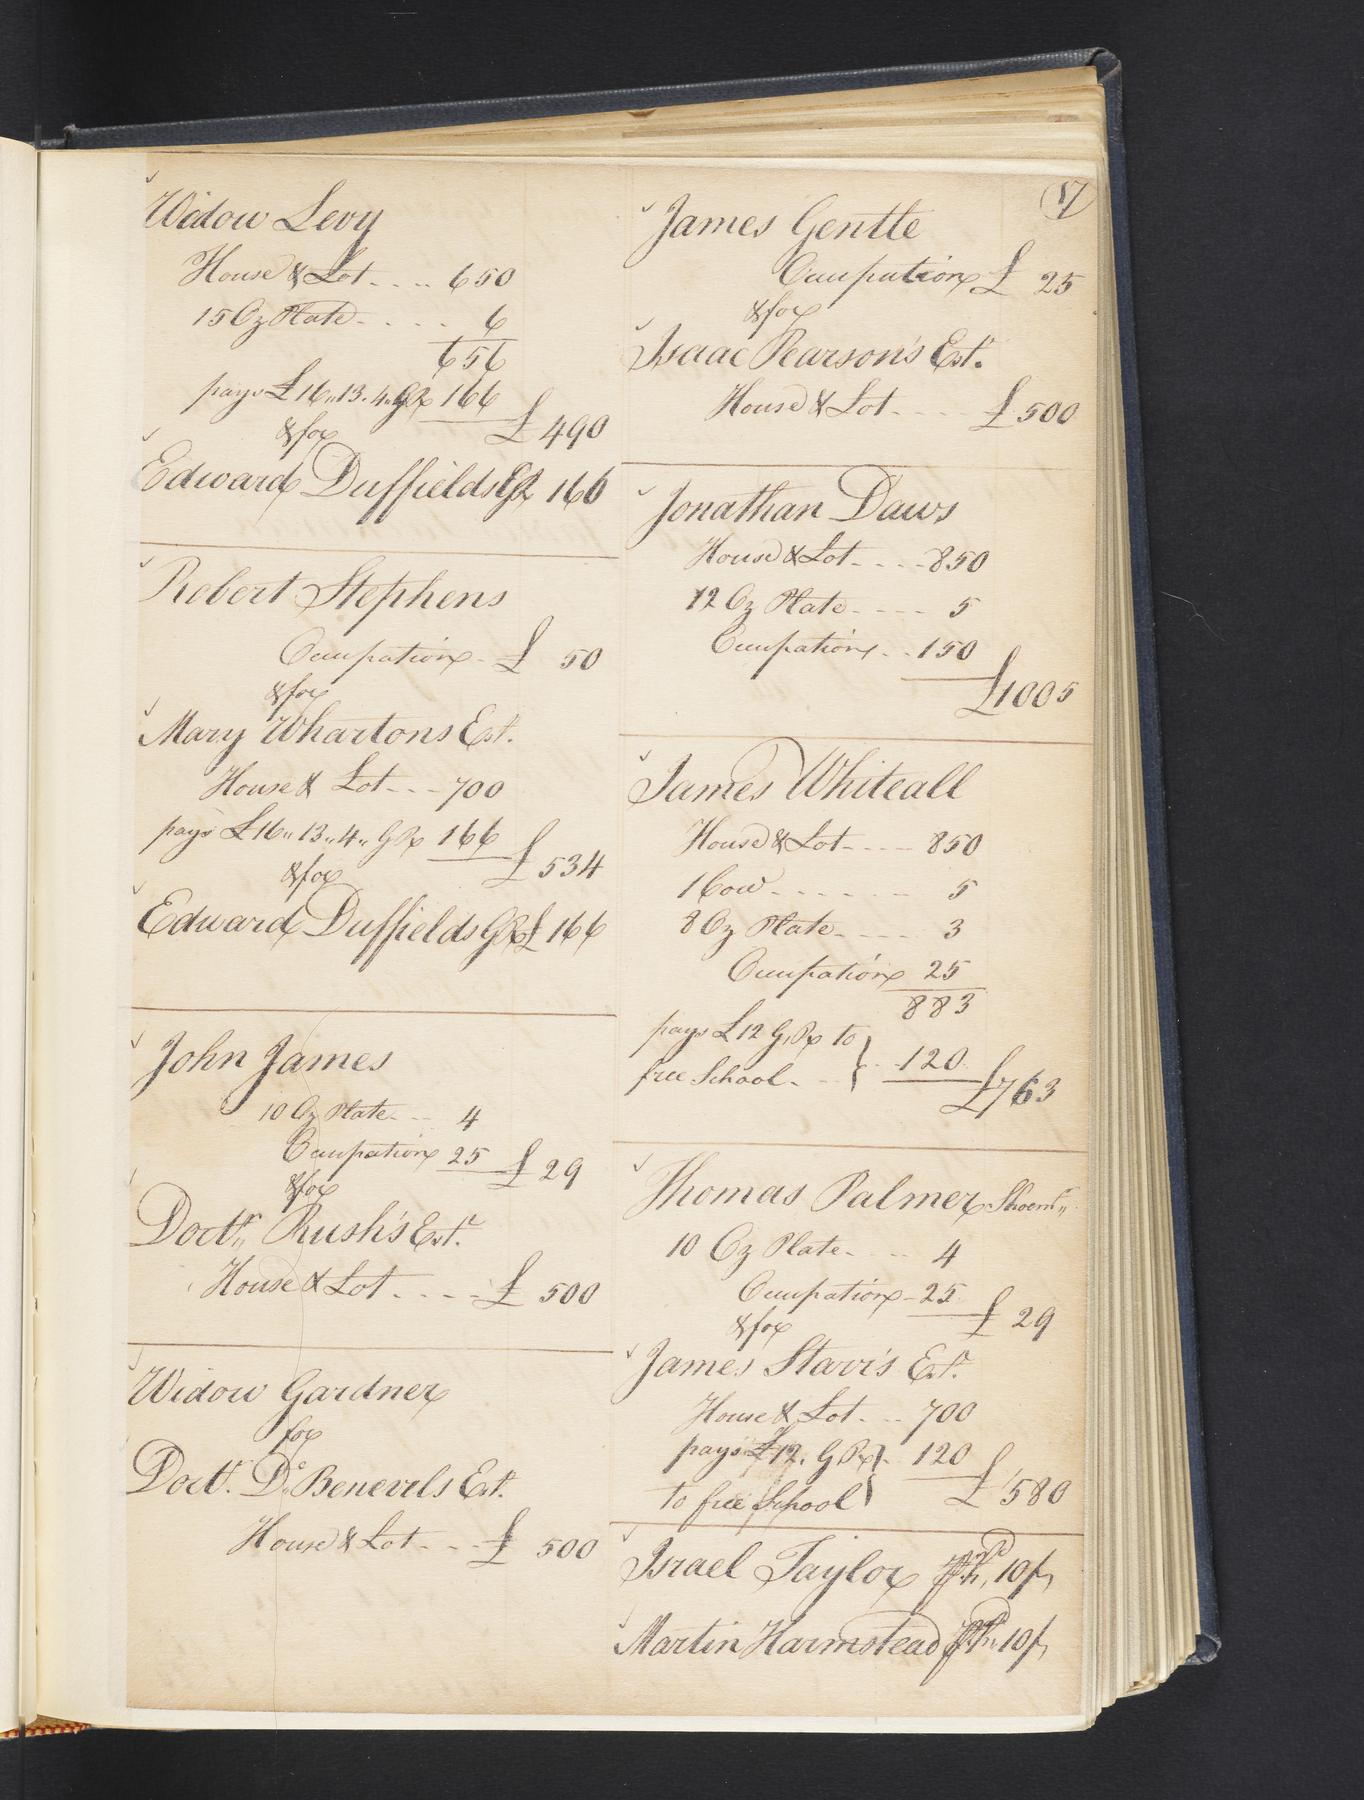 Widow Levy
House & Lot .... 650
15 Oz Plate - . . . . 6
656
pays £16,, 13. 4,, G R 166
£ 490
& for
Edward Duffields G R 166
Robert Stephens
Occupation - £ 50
& for
Mary Whartons Estr.
House & Lot - - - 700
pays £16,, 13,, 4,, G R 166
£ 534
& for
Edward Duffields G R £ 166
John James
10 Oz Plate - - - 4
Occupation 25 £ 29
& for
Doctr,, Rush's Estr.
House & Lot . . - - £ 500
Widow Gardner
for
Doctr. De Benevils Estr.
House & Lot - - - £ 500
17
James Gentle
Occupation £ 25
& for
Isaac Pearson's Estr.
House & Lot - - - - £ 500
Jonathan Daws
House & Lot - - - - 850
12 Oz Plate - - - - 5
Occupation . . 150
£1005
James Whiteall
House & Lot - - - - 850
1 Cow - - - - - - - 5
8 Oz Plate - - - - 3
Occupation 25
883
pays £12 G, R to
free School - - - } - 120
£763
Thomas Palmer Shoemr,,
10 Oz Plate - . . . 4
Occupation - 25
£ 29
& for
James Starr's Estr.
House & Lot - . . 700
pays £12. G R } - 120
to free School
£ 580
Israel Taylor 10/,
Martin Harmstead 10/,